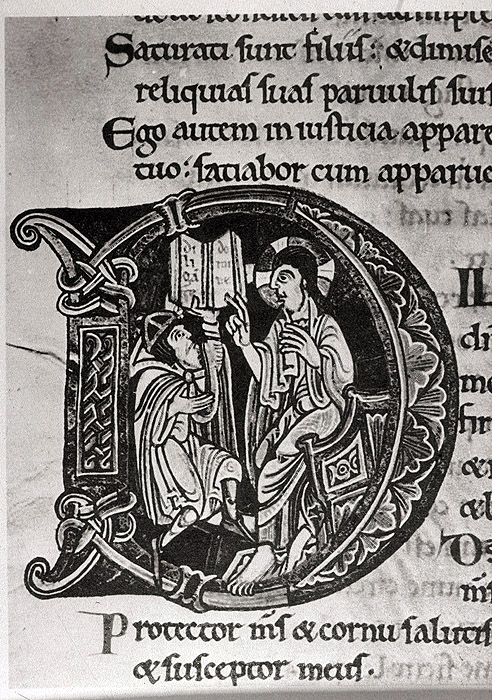 Saturati sunt filiis: & dimise
reliquias suas paruulis suis
Ego autem in iusticia appare
tuo: satiabor cum apparue
di
li
gā
IL
di
me
fir
Ds
m̄s
Protector m̄s & cornu salutis
& susceptor meus.